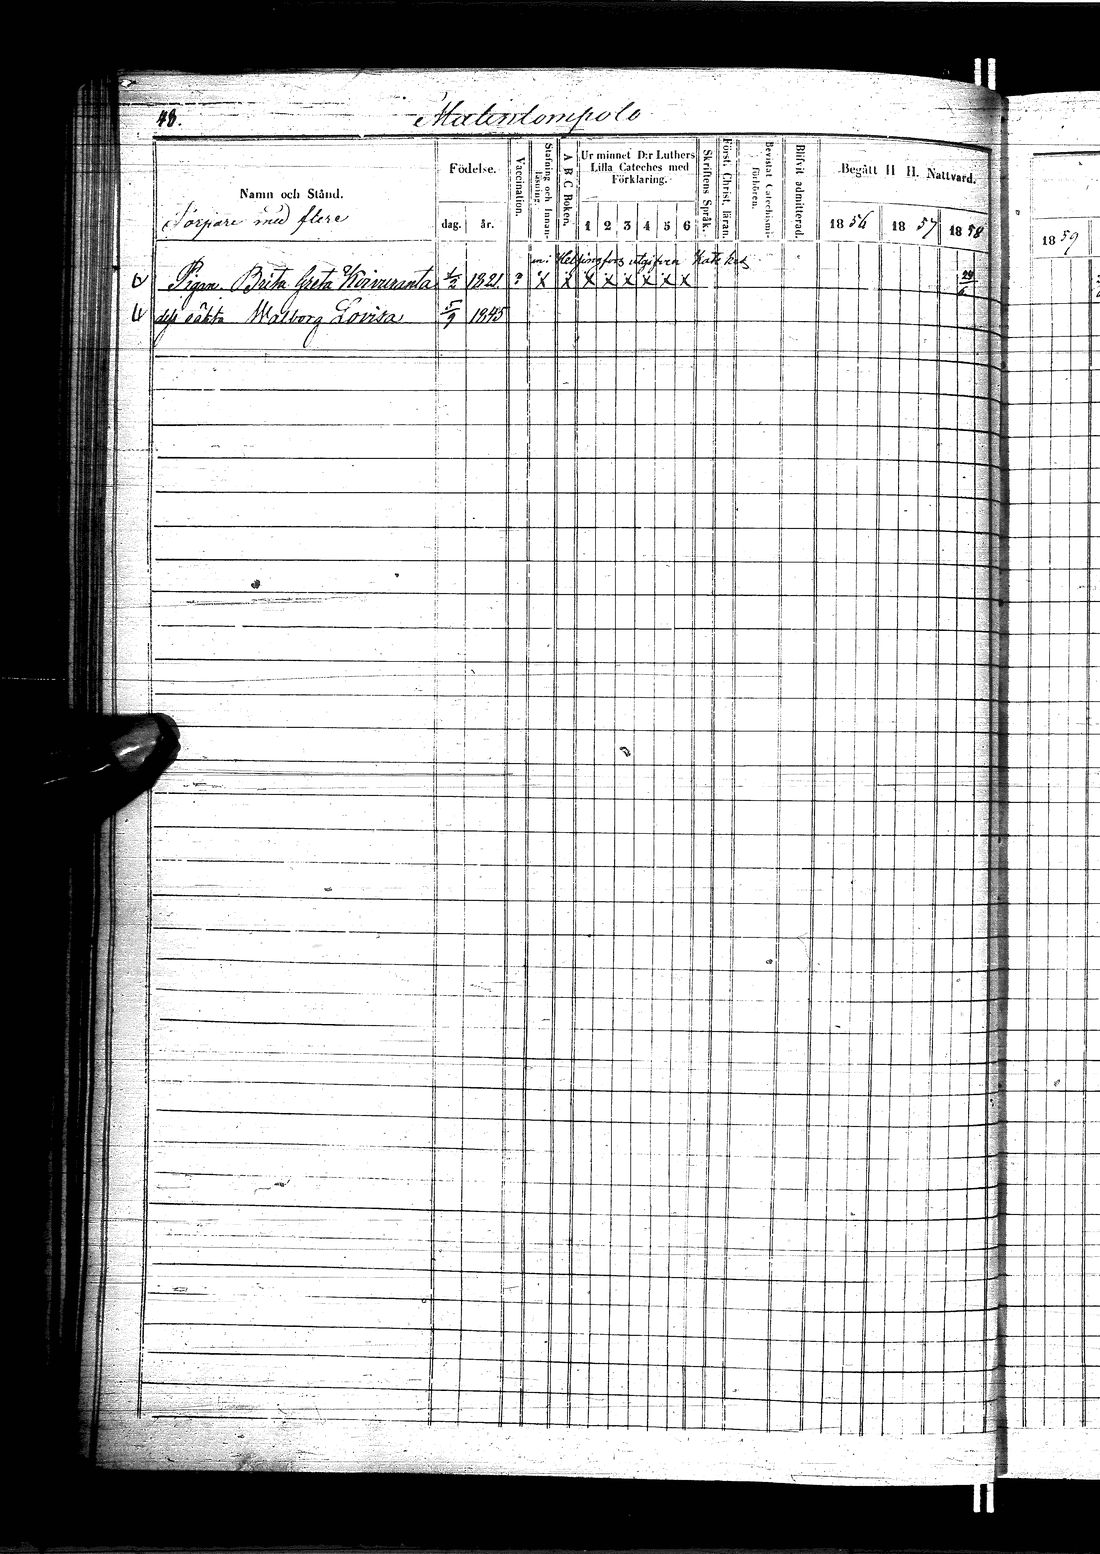 48.
Matinlompolo
Namn och Stånd.
Torpare med flere
Födelse.
dag.
år.
Vaccination.
Stafning och Innanläsning.
A B C Boken.
Ur minnet D:r Luthers Lilla Cateches med Förklaring.
1 2 3 4 5 6
Skriftens Språk.
Först. Christ. läran.
Bevistat Catechismiförhören.
Blifvit admitterad.
Begått H H. Nattvard.
1856
1857
1858
1859
en i Helsingfors utgifven Katekes
Pigan Brita Greta Koivuranta 1/2 1821. ? X X X X X X X X 24/6
dess oäkta Walborg Lovisa 5/9 1845